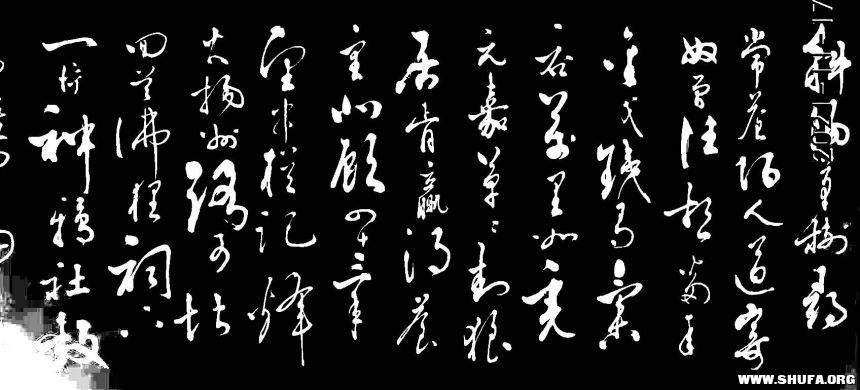 斜阳草树尋
常巷陌人道寄
奴曾住想當年
金戈鐵馬氣
吞萬里如虎
元嘉草草封狼
居胥赢得倉
皇北顧四十三年
望中猶記烽
火揚州路可堪
回首佛狸祠下
一片神鴉社鼓
WWW.SHUFA.ORG